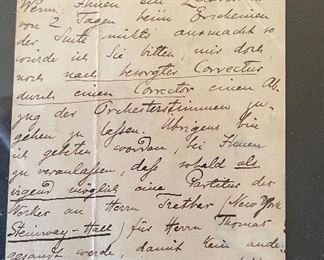 Wenn Ihnen ein
von 2 Tagen beim Erscheinen
der Suite nichts ausmacht so
würde ich Sie bitten, mir doch
noch nach besorgter Correctur
durch einen Corrector einen Ab-
zug der Orchesterstimmen zu-
gehen zu lassen. Übrigens bin
ich gebeten worden, bei Ihnen
zu veranlassen, daß sobald als
irgend möglich eine Partitur der
Werker an Herrn Tretbar (New York
Steinway-Hall) für Herrn Thomas
gesandt werde, damit kein ande-